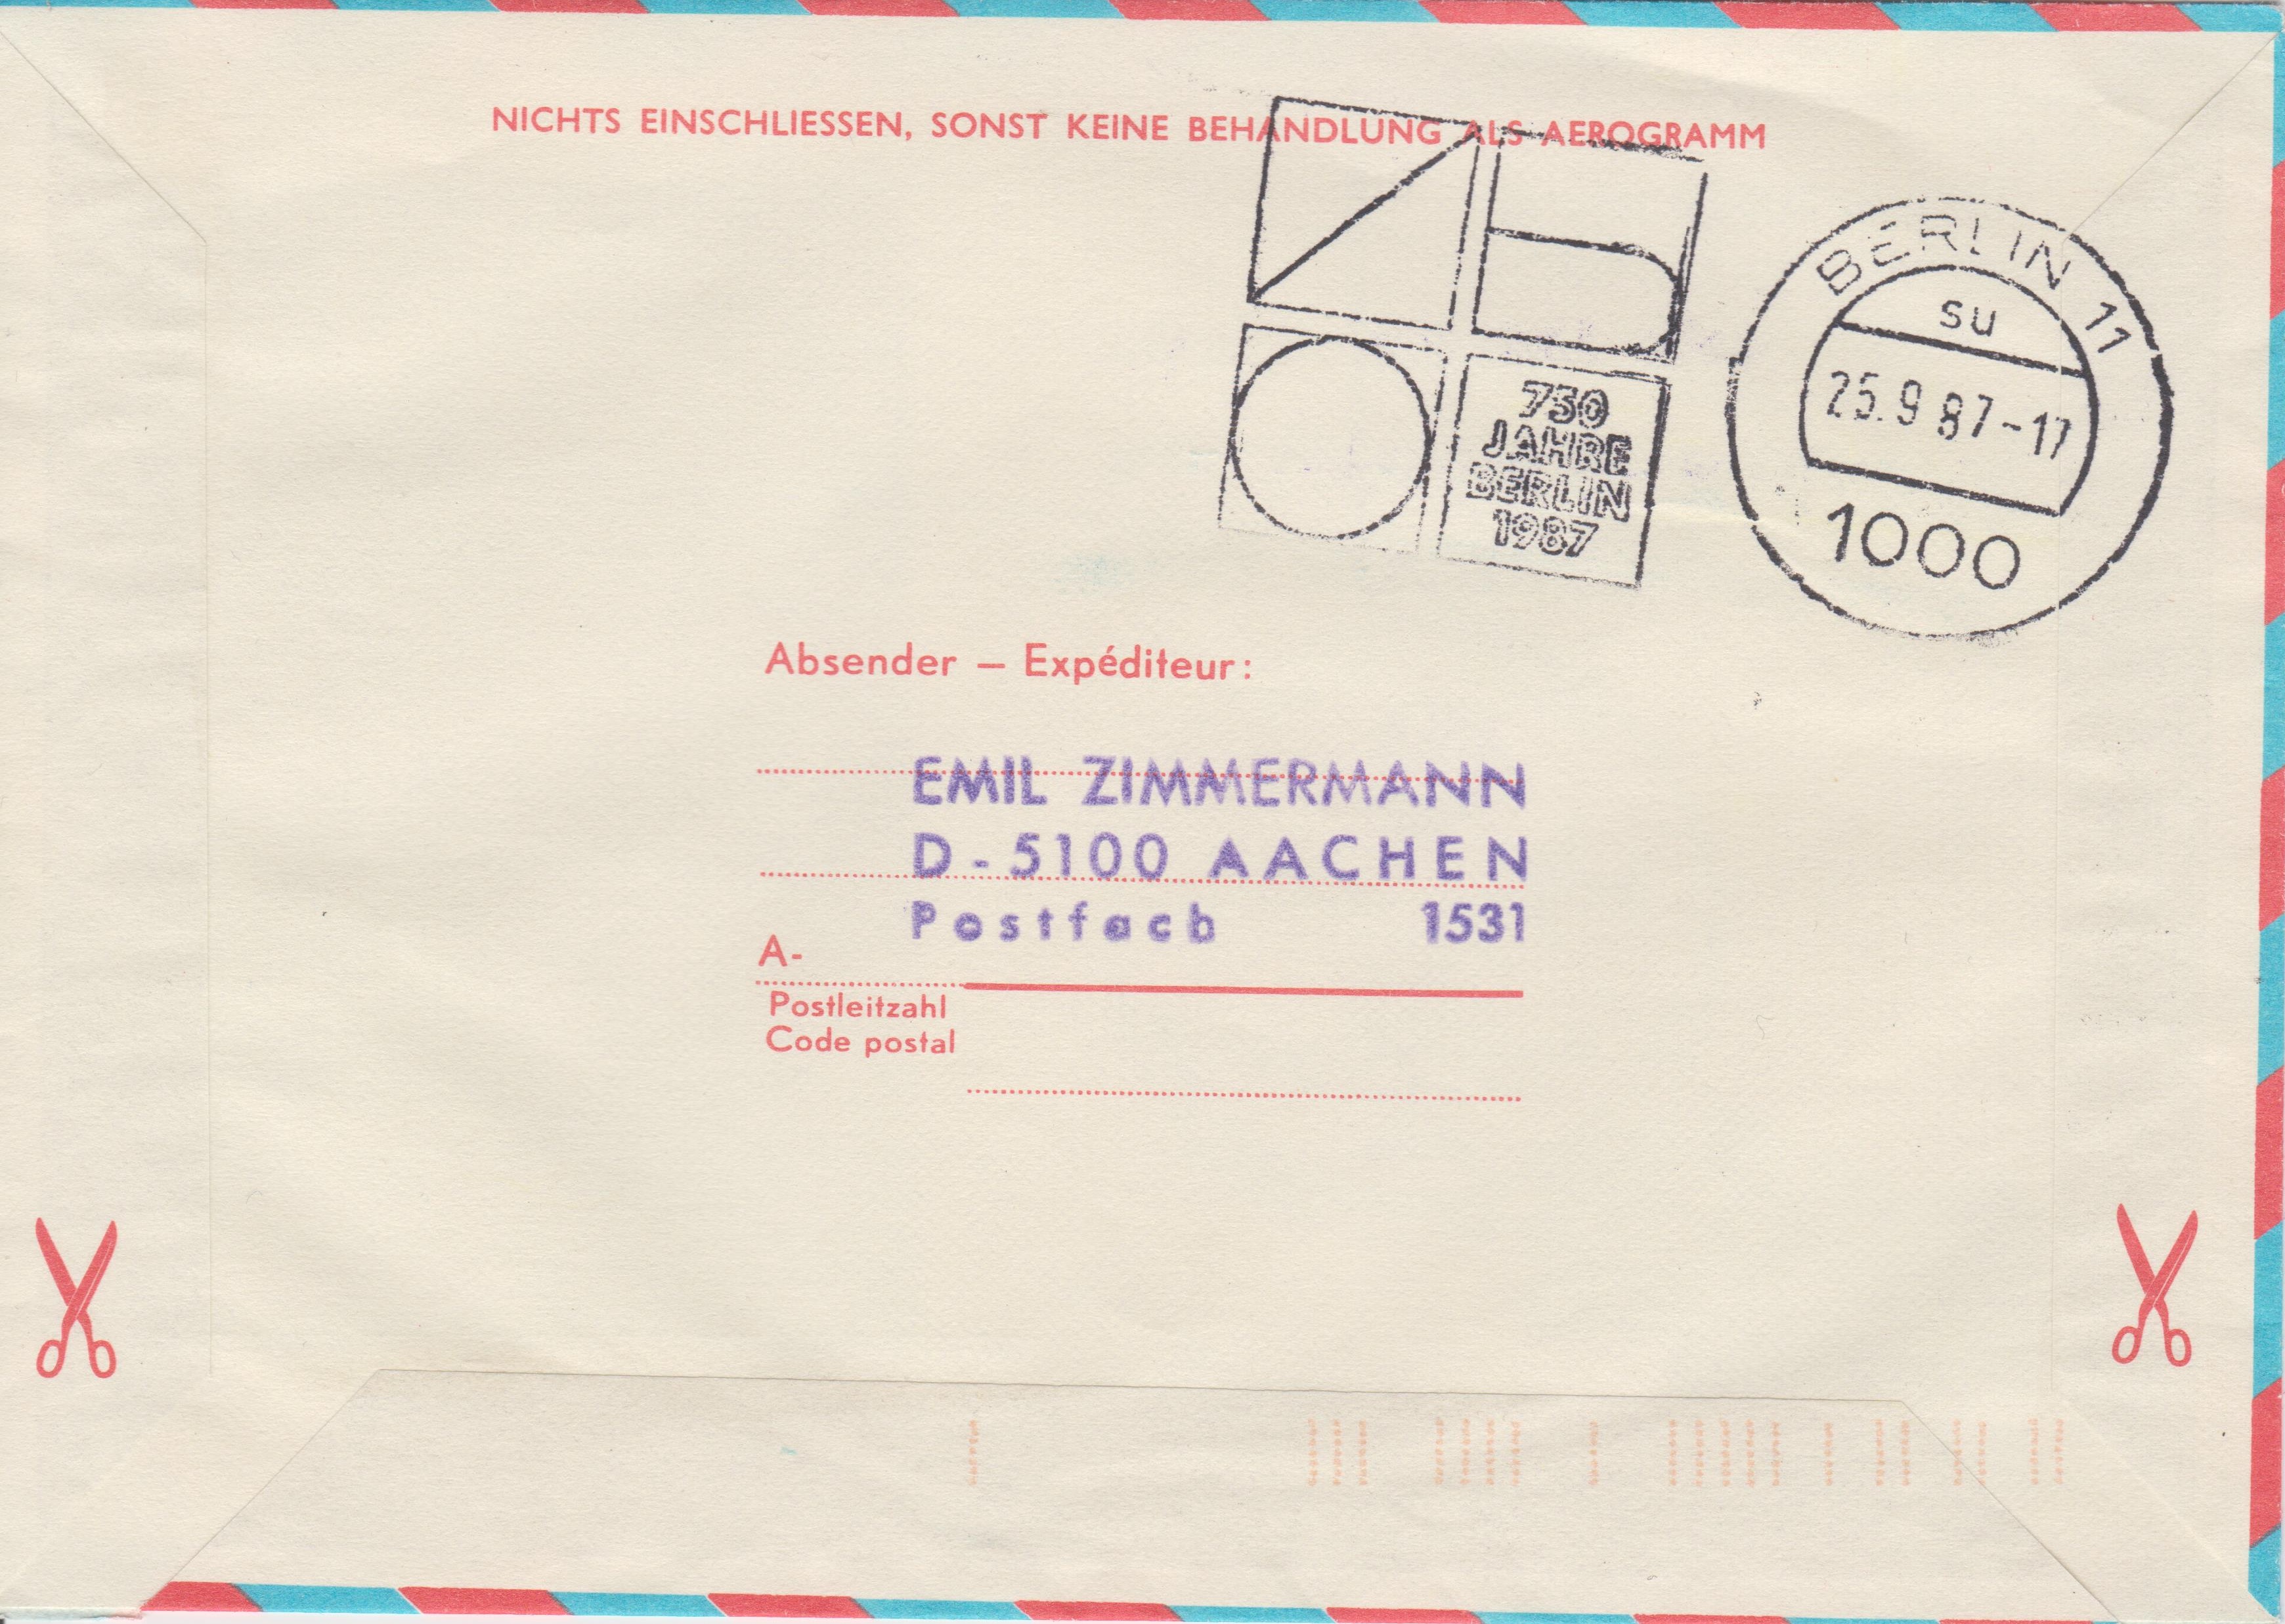 NICHTS EINSCHLIESSEN, SONST KEINE BEHANDLUNG ALS AEROGRAMM
750
JAHRE
BERLIN
1987
BERLIN 11
su
25.9 87-17
1000
Absender – Expéditeur:
EMIL ZIMMERMANN
D-5100 AACHEN
Postfach 1531
A-
Postleitzahl
Code postal